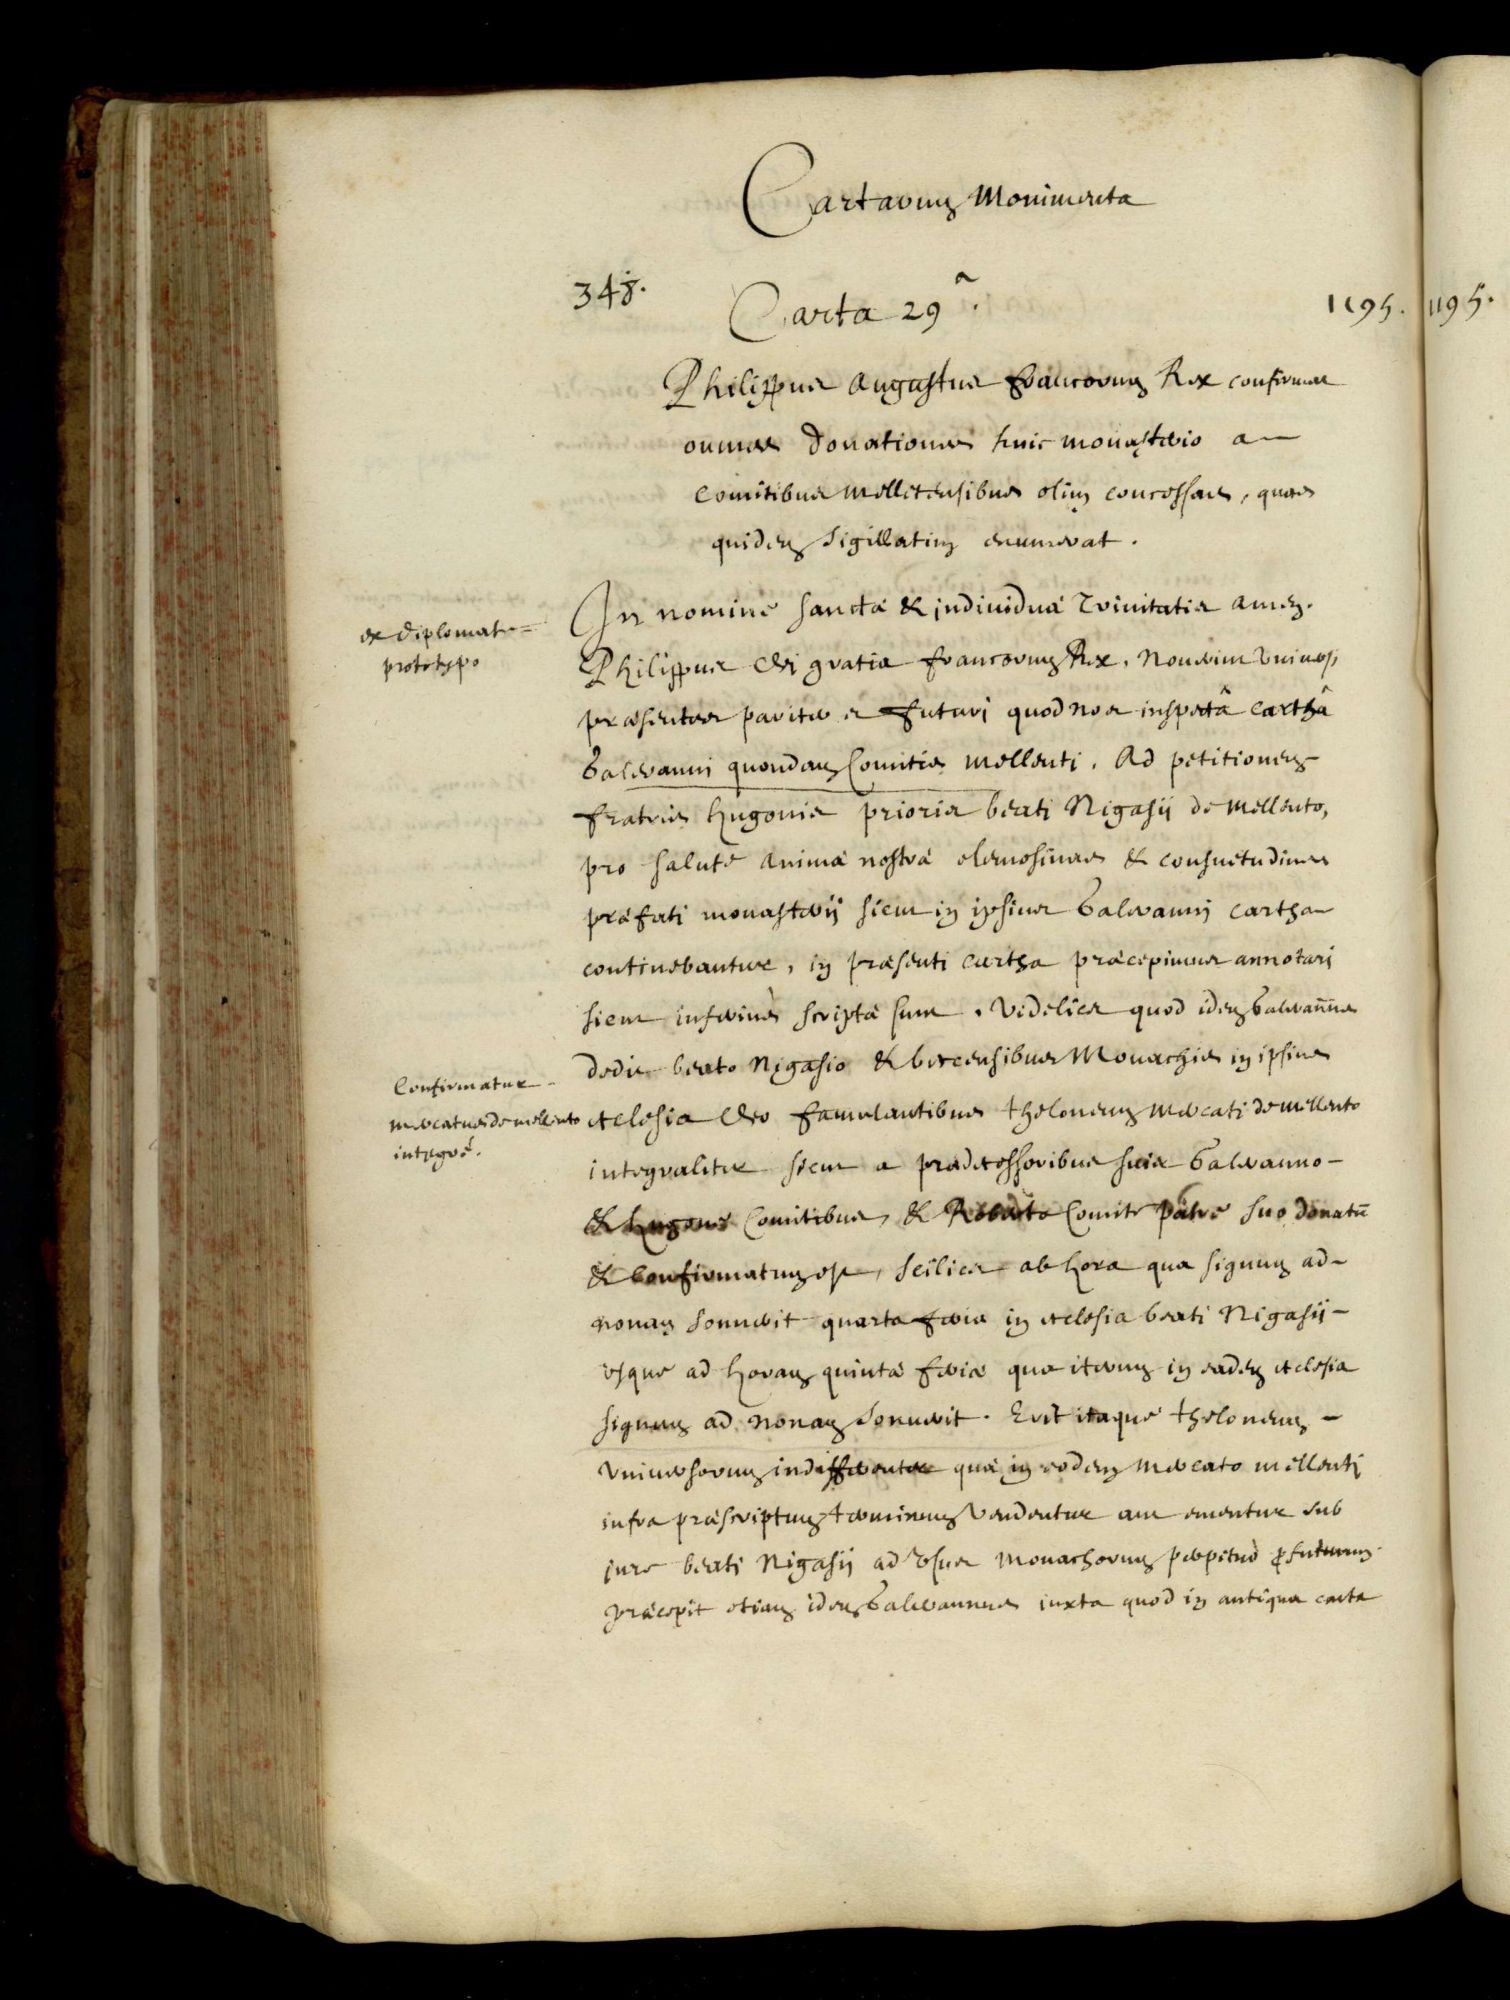 Cartarum Monimenta
348.
Carta 29ª.
1195. 1195.
Philippus Augustus francorum Rex confirmat
omnes donationes huic monasterio a
Comitibus Melletensibus olim concessas, quas
quidem sigillatim enumerat.
In nomine sanctæ & individuæ Trinitatis amen.
ex diplomate
prototypo
Philippus Dei gratia francorum Rex. Noverint universi
præsentes pariter et futuri quod nos inspectâ carthâ
Galeranni quondam Comitis Mellenti. Ad petitionem
fratris Hugonis prioris beati Nigasii de Mellento,
pro salute animæ nostræ elemosinas & consuetudines
præfati monasterii sicut in ipsius Galeranni cartha
continebantur, in præsenti cartha præcepimus annotari
sicut inferius scripta sunt. Videlicet quod idem Galerannus
dedit beato Nigasio & beccensibus Monachis in ipsius
Confirmatur
mercatus de mellento
integrè.
ecclesia Deo famulantibus theloneum mercati de mellento
integraliter sicut a prædecessoribus suis Galeranno
& Hugone Comitibus, & Roberto Comite patre suo donatū
& confirmatum est, scilicet ab hora qua signum ad
nonam sonuerit quarta feria in ecclesia beati Nigasii
usque ad horam quintæ feriæ qua iterum in eadem ecclesia
signum ad nonam sonuerit. Erit itaque theloneum
universorum indifferenter quæ in eodem mercato mellenti
infra præscriptum terminum vendentur aut ementur sub
jure beati Nigasii ad usus Monachorum perpetuò profuturum
præcepit etiam idem Galerannus iuxta quod in antiqua carta